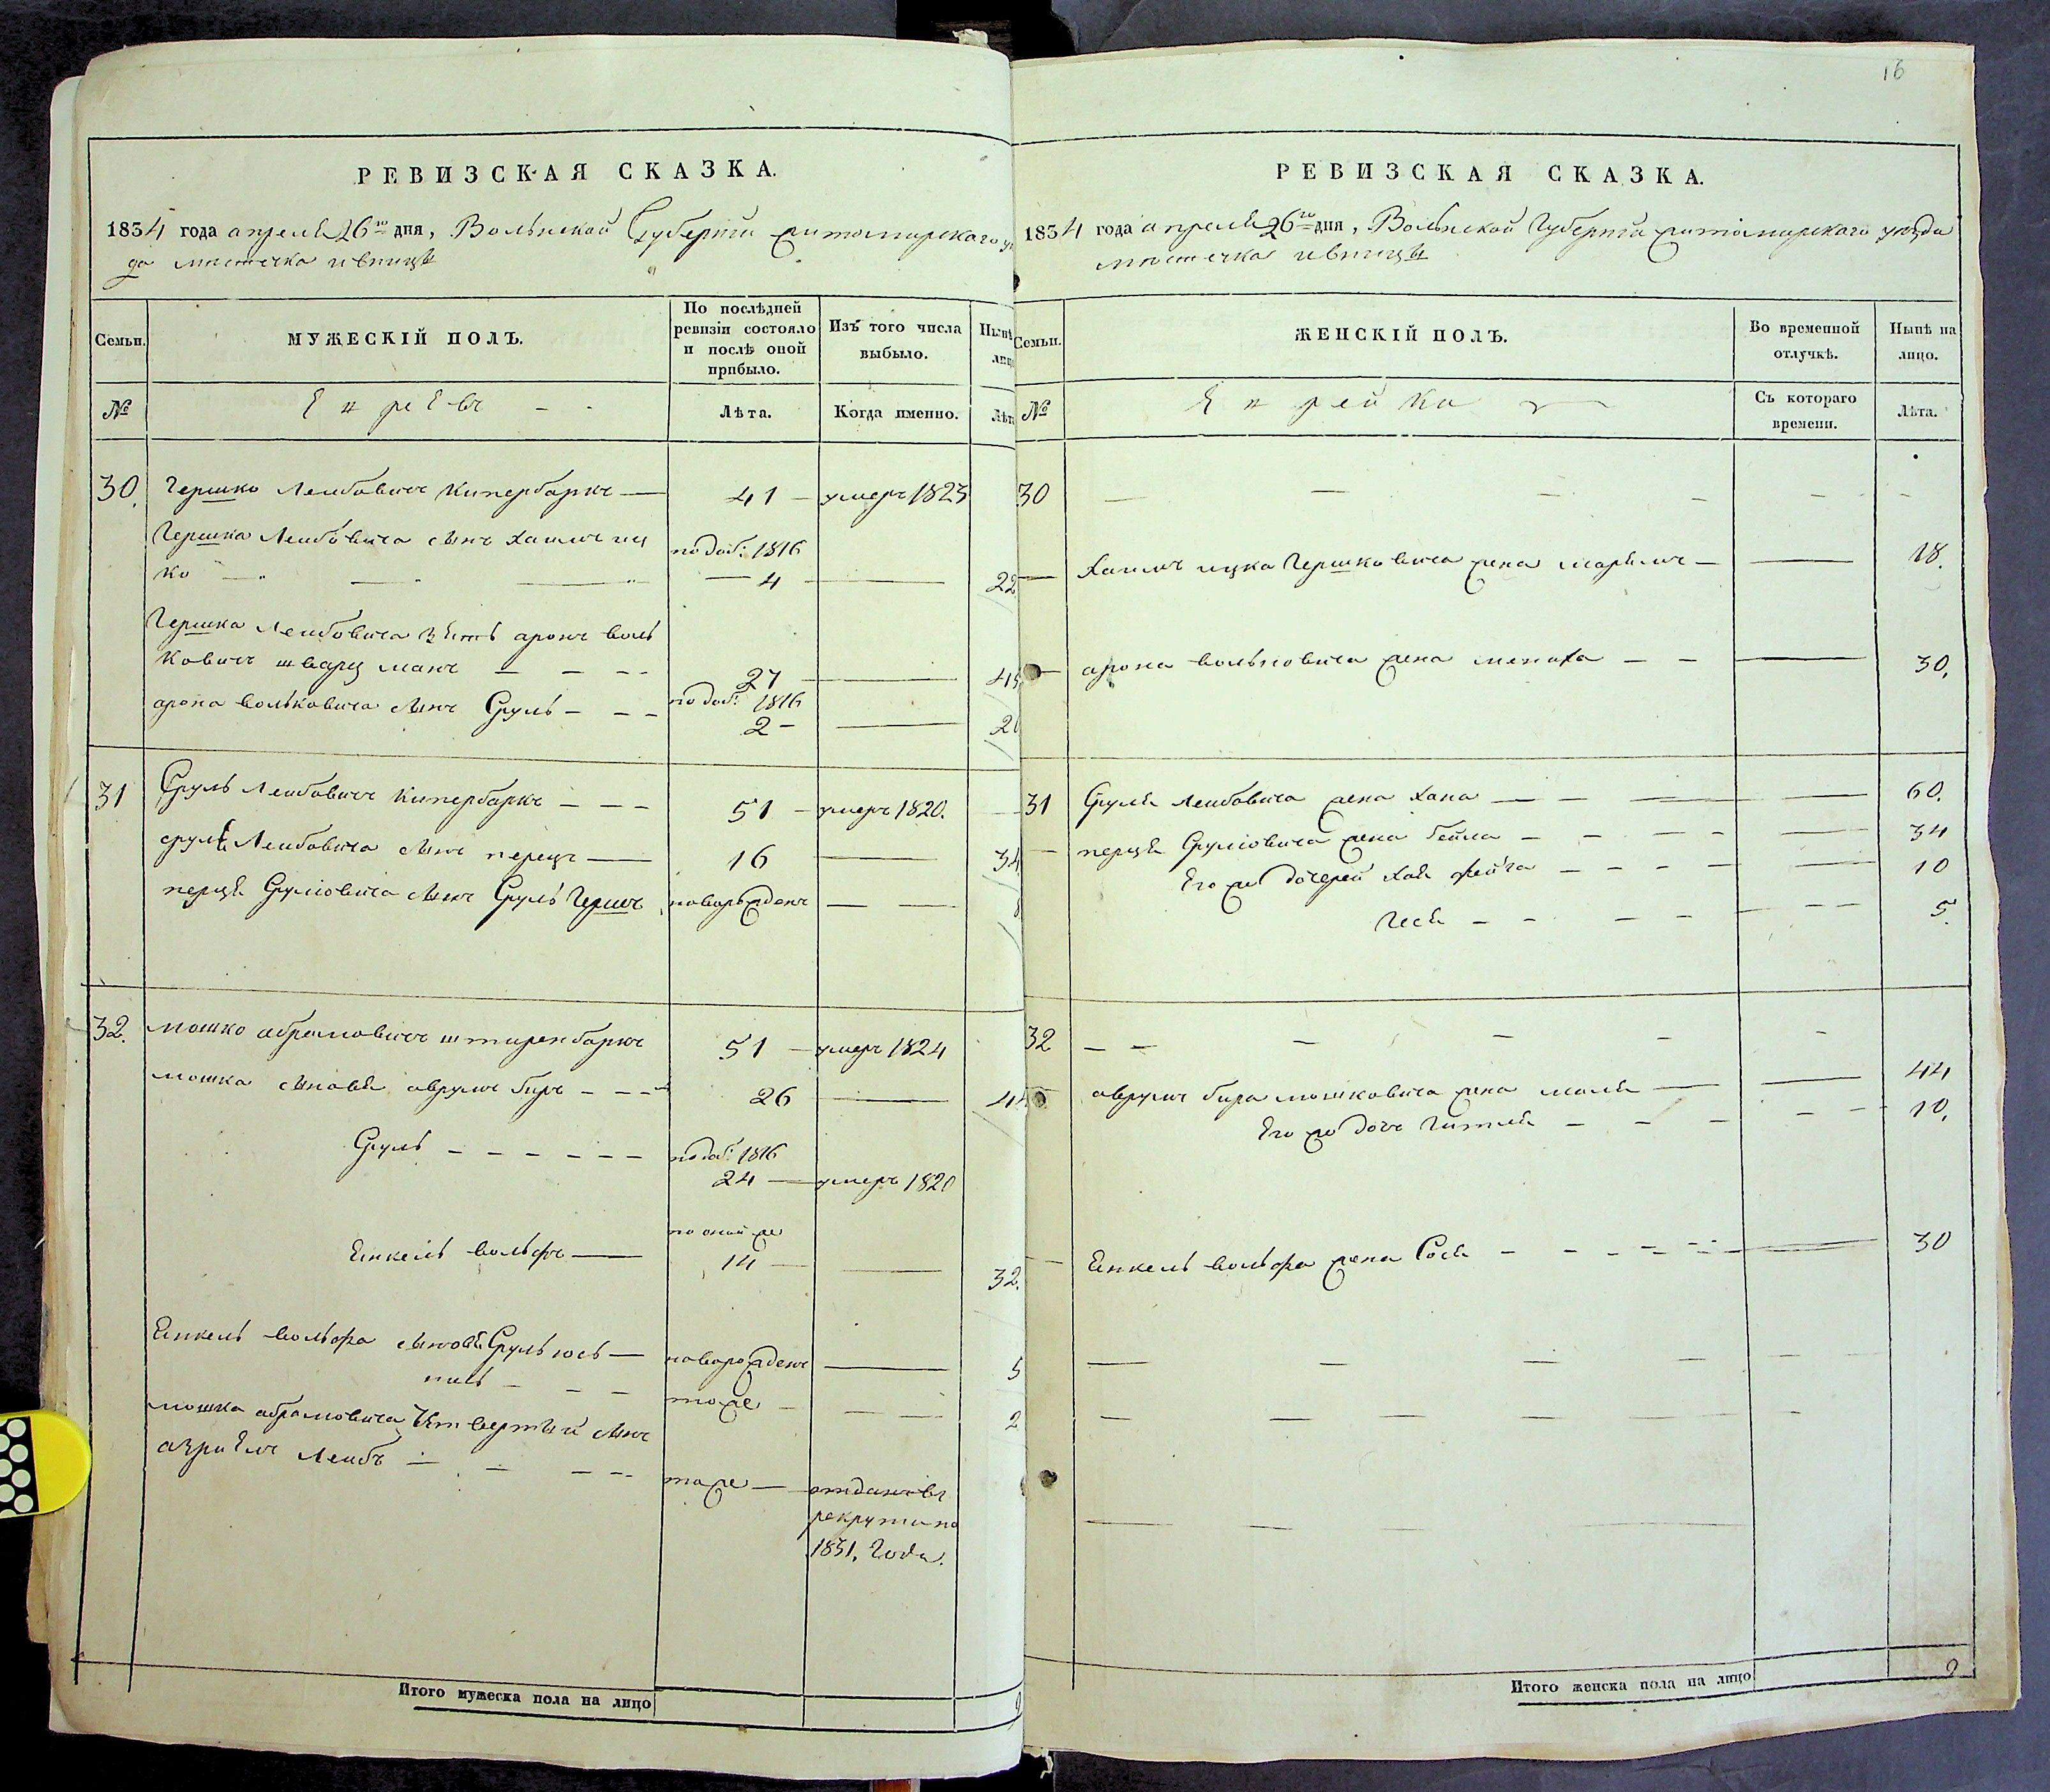 РЕВИЗСКАЯ СКАЗКА.
1834 года апреля 26го дня, Волынской Губерніи житомирского уѣ
да местечка ивницѣ
Семьи.
МУЖЕСКІЙ ПОЛЪ.
По послѣдней ревизіи состояло и послѣ оной прибыло.
Изъ того числа выбыло.
Нынѣ
лицо
№
Евреевъ
Лѣта.
Когда именно.
Лѣта
30. Гершко Лейбовичъ Кипербаркъ — 41 — умеръ 1823
Гершка Лейбовича сынъ хаимъ иц по доб: 1816
ко — 4 — 22
Гершка Лейбовича зять аронъ воль
ковичъ шварцманъ — 27 — 45
арона вольковича сынъ Сруль — по доб: 1816
2 — 20
31 Сруль Лейбовичъ Кипербаркъ — 51 — умеръ 1820.
сруля Лейбовича сынъ перецъ — 16 — 34
перця Сруліовича сынъ Сруль Гершъ новорожденъ —
32. мошко абрамовичъ штиренбаркъ 51 — умеръ 1824
мошка сыновя аврумъ биръ — 26 — 44
Сруль — по доб: 1816
24 — умеръ 1820
по оной же
Енкель вольфъ — 14 — 32.
Енкель вольфа сыновя Сруль юсь — новорожденъ — 5
тоже — 2
мошка абрамовича четвертый сынъ
азріелъ Лейбъ — тоже — отданъ въ
рекруты по
1831. Года.
Итого мужеска пола на лицо 9
16
РЕВИЗСКАЯ СКАЗКА.
1834 года апреля 26го дня, Волынской Губерніи житомирского уѣзда
местечка ивницѣ
Семьи.
ЖЕНСКІЙ ПОЛЪ.
Во временной отлучкѣ.
Нынѣ на лицо.
№
Еврейки
Съ котораго времени.
Лѣта.
30 —
хаимъ ицка Гершковича жена марьямъ — 18.
арона вольковича жена мениха — 30.
31 Сруля Лейбовича жена хана — 60.
перця Сруліовича жена бейла — 34
Его же дочерей хая фейга — 10
Геся — 5.
32 —
аврумъ бира мошковича жена маля — 44
Его же дочь Гитля — 10.
Енкель вольфа жена Сося — 30
Итого женска пола на лицо 9